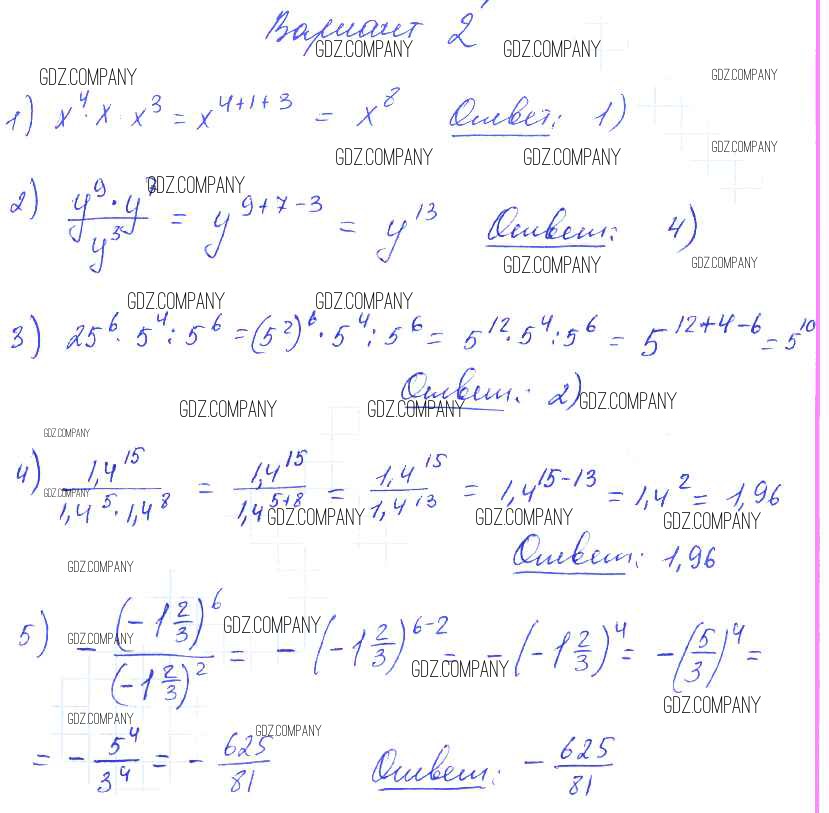 Вариант 2
GDZ.COMPANY GDZ.COMPANY
GDZ.COMPANY GDZ.COMPANY
1) x⁴·x·x³ = x⁴⁺¹⁺³ = x⁸ Ответ: 1)
GDZ.COMPANY
GDZ.COMPANY GDZ.COMPANY
GDZ.COMPANY
2) (y⁹·y⁷)/y³ = y⁹⁺⁷⁻³ = y¹³ Ответ: 4)
GDZ.COMPANY GDZ.COMPANY
GDZ.COMPANY GDZ.COMPANY
3) 25⁶·5⁴:5⁶ = (5²)⁶·5⁴:5⁶ = 5¹²·5⁴:5⁶ = 5¹²⁺⁴⁻⁶ = 5¹⁰
Ответ: 2)
GDZ.COMPANY GDZ.COMPANY GDZ.COMPANY
GDZ.COMPANY
4) 1,4¹⁵/(1,4⁵·1,4⁸) = 1,4¹⁵/1,4⁵⁺⁸ = 1,4¹⁵/1,4¹³ = 1,4¹⁵⁻¹³ = 1,4² = 1,96
GDZ.COMPANY
GDZ.COMPANY GDZ.COMPANY GDZ.COMPANY
Ответ: 1,96
GDZ.COMPANY
5) -(-1 2/3)⁶/(-1 2/3)² = -(-1 2/3)⁶⁻² = -(-1 2/3)⁴ = -(5/3)⁴ =
GDZ.COMPANY
GDZ.COMPANY
GDZ.COMPANY
GDZ.COMPANY
GDZ.COMPANY GDZ.COMPANY
= -5⁴/3⁴ = -625/81 Ответ: -625/81